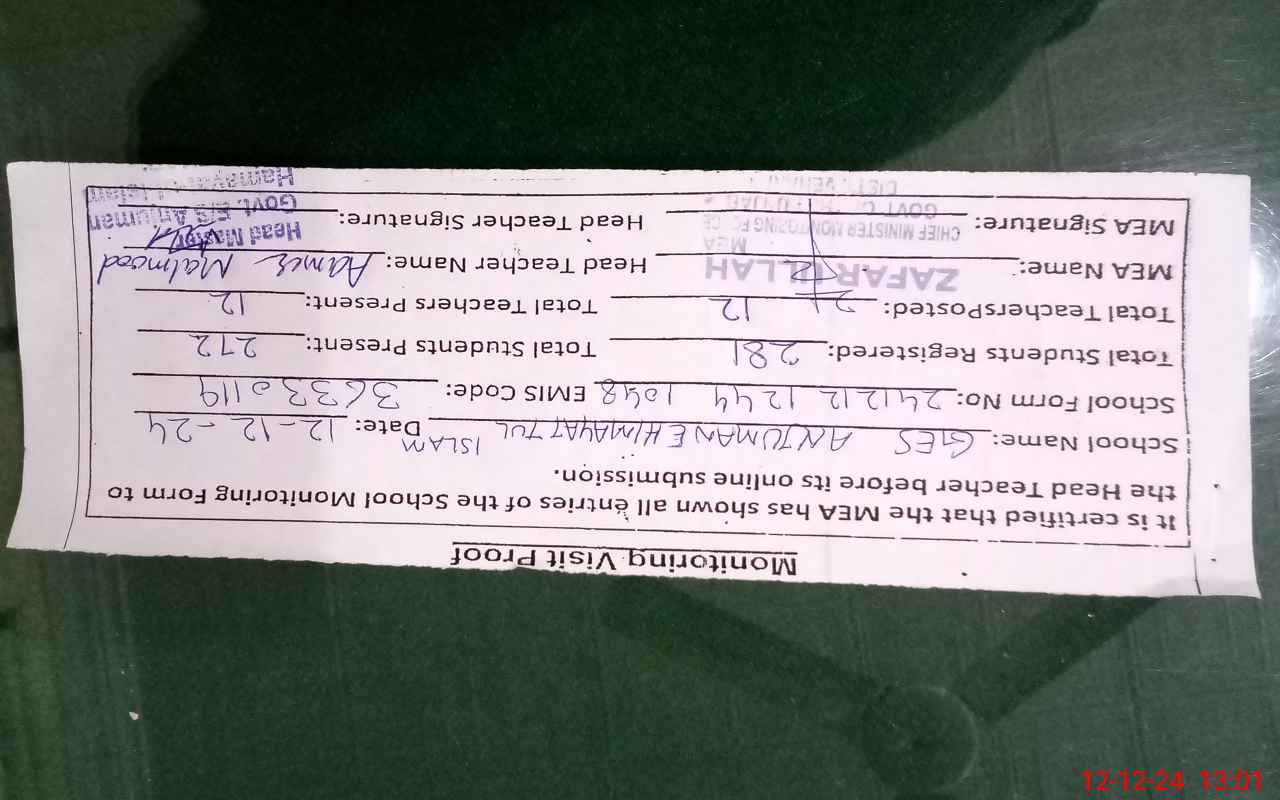 Monitoring Visit Proof
It is certified that the MEA has shown all entries of the School Monitoring Form to
the Head Teacher before its online submission.
School Name: GES ANJUMAN E HIMAYAT TUL ISLAM Date: 12-12-24
School Form No: 241212 1244 1048 EMIS Code: 36330119
Total Students Registered: 281 Total Students Present: 272
Total TeachersPosted: 12 Total Teachers Present: 12
MEA Name: ZAFAR ULLAH Head Teacher Name: Aamer Mahmood
MEA
CHIEF MINISTER MONITORING FORCE
MEA Signature: Head Teacher Signature:
Head Master
Govt. E/S Anjuman
GOVT
12-12-24 13:01